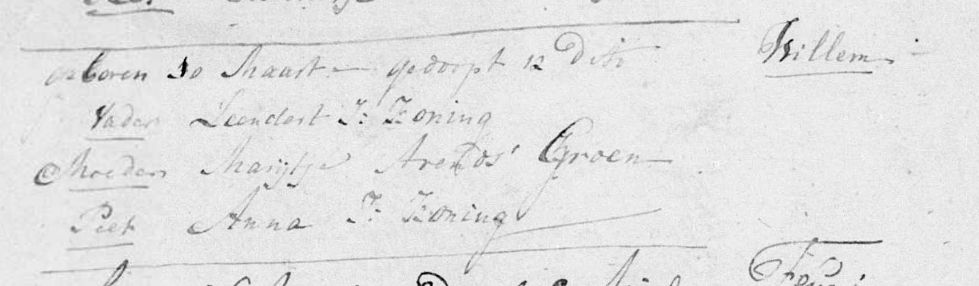 geboren 10 Maart – gedoopt 12 Dito Willem
Vader Leendert J: Koning
Moeder Marijtje Arends' Groen
Peet Anna J: Koning